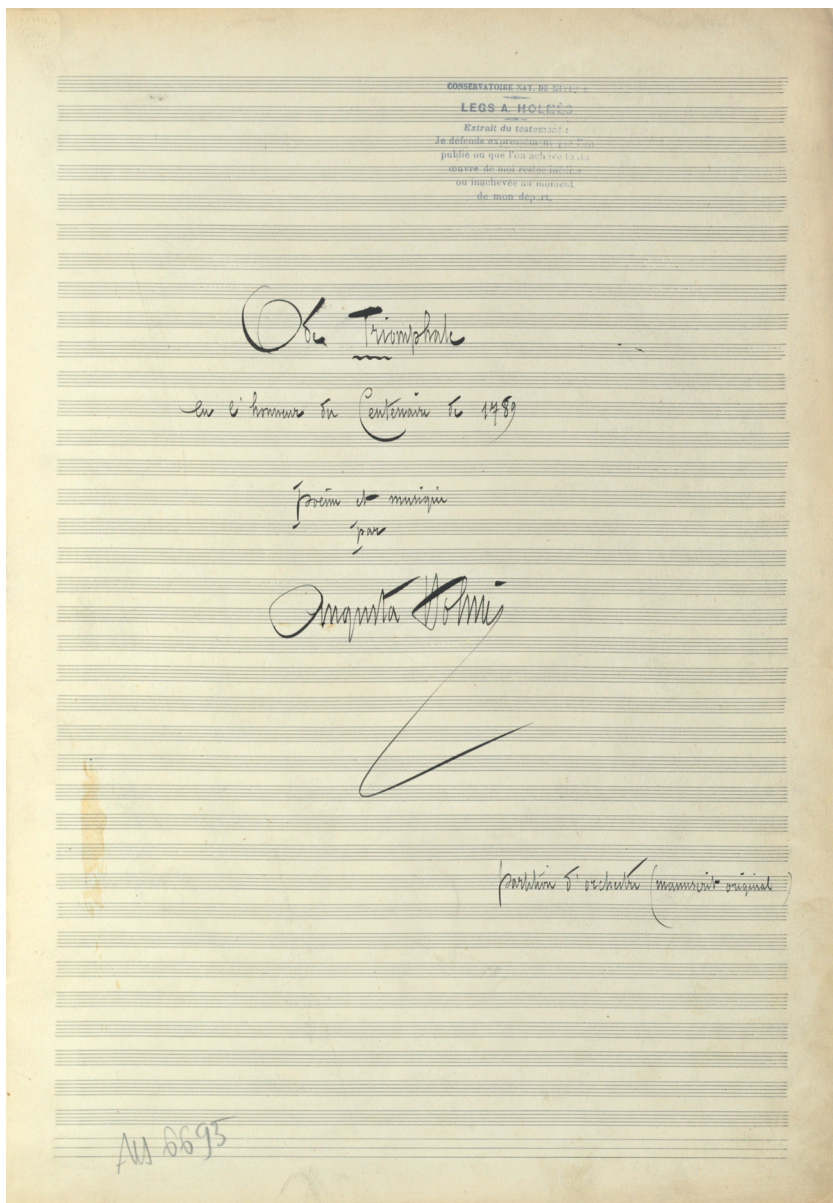 CONSERVATOIRE NAT. DE MUSIQUE
LEGS A. HOLMÈS
Extrait du testament :
Je défends expressément que l'on
publie ou que l'on achève toute
œuvre de moi restée inédite
ou inachevée au moment
de mon départ.
Ode Triomphale
en l'honneur du Centenaire de 1789
poème et musique
par
Augusta Holmès
partition d'orchestre (manuscrit original)
Ms 6695